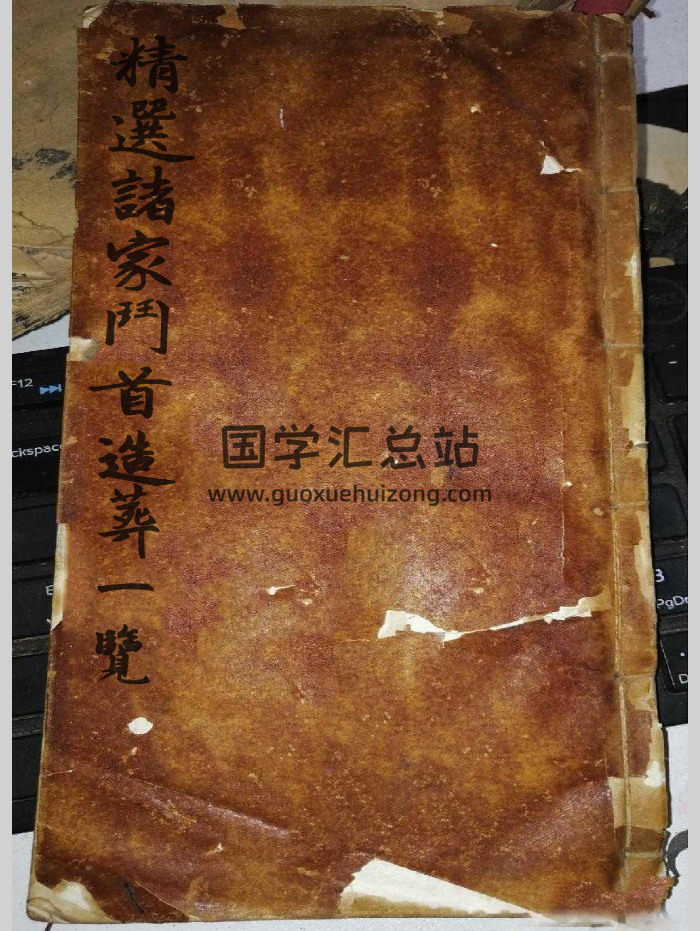 精選諸家鬥首造葬一覽
国学汇总站
www.guoxuehuizong.com
F12
ckspace
PgDn